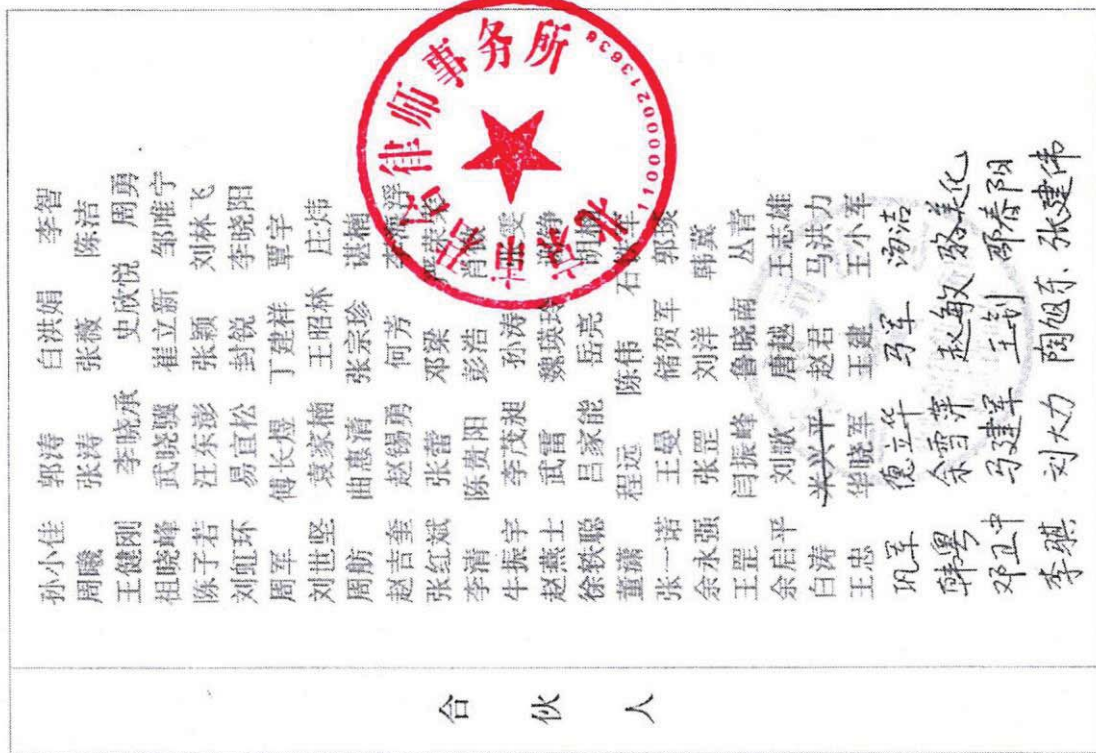 合伙人
孙小佳 郭涛 白洪娟 李智
周曦 张涛 张薇 陈洁
王健刚 李晓承 史欣悦 周勇
祖晓峰 武晓骥 崔立新 邹唯宁
陈子若 汪东澎 张颖 刘林飞
刘虹环 易宜松 封锐 李晓阳
周军 傅长煜 丁建祥 覃宇
刘世坚 袁家楠 王昭林 庄炜
周舫 曲惠清 张宗珍 谌楠
赵吉奎 赵锡勇 何芳
张红斌 张蕾 邓梁
李清 陈贵阳 彭浩
牛振宇 李茂昶 孙涛
赵燕士 武雷 魏瑛玲
徐铁聪 吕家能 岳亮
董潇 程远 陈伟
张一诺 王曼 储贺军 郭琰
余永强 张罡 刘洋 韩冀
王罡 闫振峰 鲁晓南 丛青
余启平 刘歌 唐越 王志雄
白涛 米兴平 赵君 马洪力
王忠 华晓军 王建 王小军
巩军 德立华 马军 汤洁
韩粤 余雪萍 赵敏
邓卫中 马建军 王钊 邵春阳
李骐 刘大力 陶旭东、张建伟
律师事务所
1100000213636